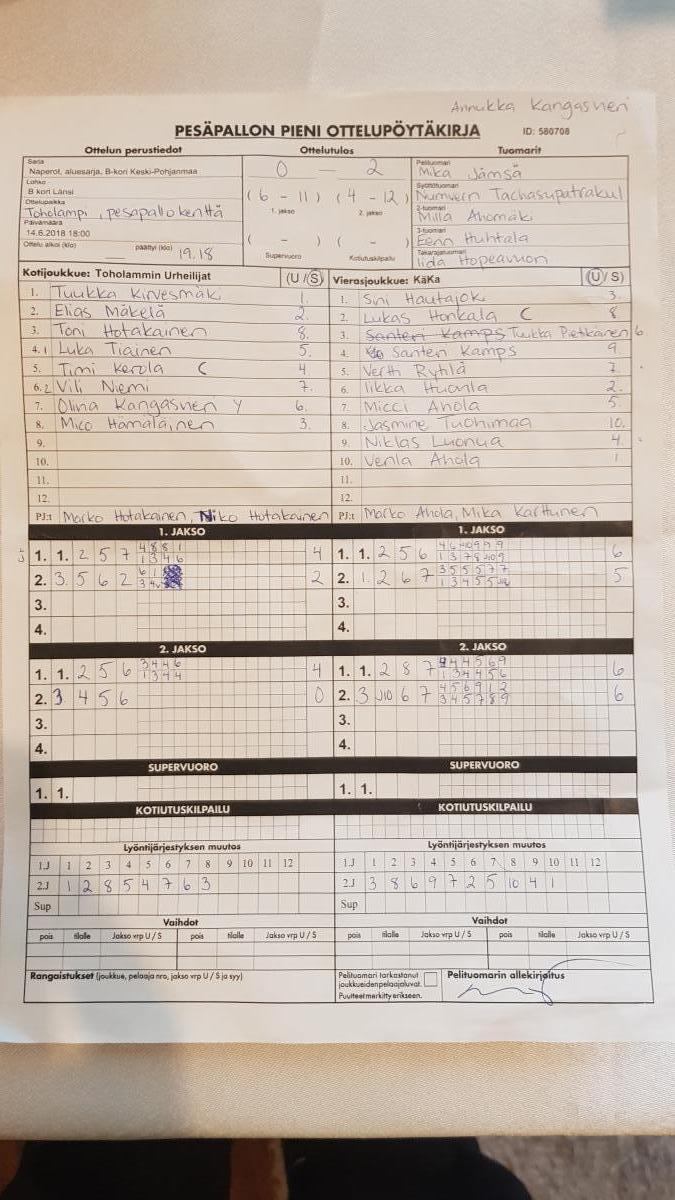 Annukka Kangasneri
PESÄPALLON PIENI OTTELUPÖYTÄKIRJA ID: 580708
Ottelun perustiedot Ottelutulos Tuomarit
Sarja
Naperot, aluesarja, B-kori Keski-Pohjanmaa
Lohko
B kori Länsi
Ottelupaikka
Toholampi, pesäpallokenttä
Päivämäärä
14.6.2018 18:00
Ottelu alkoi (klo) päättyi (klo) 19.18
0 — 2
(6 - 11) (4 - 12)
1. jakso 2. jakso
( - ) ( - )
Supervuoro Kotiutuskilpailu
Pelituomari
Mika Jämsä
Syöttötuomari
Numvern Tachasupatrakul
2-tuomari
Milla Ahomäki
3-tuomari
Eenn Huhtala
Takarajatuomari
Iida Hopeavuori
Kotijoukkue: Toholammin Urheilijat (U/S)
1. Tuukka Kirvesmäki 1.
2. Elias Mäkelä 2.
3. Toni Hotakainen 8.
4. 1 Luka Tiainen 5.
5. Timi Kerola C 4
6. 2 Vili Niemi 7.
7. Olina Kangasneri Y 6.
8. Mico Hämäläinen 3.
9.
10.
11.
12.
PJ:t Marko Hotakainen, Niko Hotakainen
Vierasjoukkue: KäKa (U/S)
1. Sini Hautajoki 3.
2. Lukas Honkala C 8
3. Santeri Kamps Tuukka Pietikäinen 6
4. Santeri Kamps 9.
5. Vertti Ryhlä 7.
6. Iikka Huonla 2.
7. Micci Ahola 5.
8. Jasmine Tuohimaa 10.
9. Niklas Luonua 4.
10. Venla Ahola 1
11.
12.
PJ:t Marko Ahola, Mika Karttunen
1. JAKSO 1. JAKSO
1. 1. 2 5 7 4 8 8 1 4
1 3 4 6
2. 3. 5 6 2 6 1 2
3.
4.
1. 1. 2 5 6 6
2. 1. 2 6 7 3 5 5 5 7 7 5
3.
4.
2. JAKSO 2. JAKSO
1. 1. 2 5 6 3 4 4 6 4
1 3 4 4
2. 3. 4 5 6 0
3.
4.
1. 1. 2 8 7 9 4 4 5 6 9 6
1 3 4 4 5 6
2. 3 10 6 7 4 5 6 9 1 2 6
3 4 5 7 8 9
3.
4.
SUPERVUORO SUPERVUORO
1. 1. 1. 1.
KOTIUTUSKILPAILU KOTIUTUSKILPAILU
Lyöntijärjestyksen muutos Lyöntijärjestyksen muutos
1.J 1 2 3 4 5 6 7 8 9 10 11 12
2.J 1 2 8 5 4 7 6 3
Sup
1.J 1 2 3 4 5 6 7 8 9 10 11 12
2.J 3 8 6 9 7 2 5 10 4 1
Sup
Vaihdot Vaihdot
pois tilalle Jakso vrp U / S pois tilalle Jakso vrp U / S
pois tilalle Jakso vrp U / S pois tilalle Jakso vrp U / S
Rangaistukset (joukkue, pelaaja nro, jakso vrp U / S ja syy)
Pelituomari tarkastanut
joukkueiden pelaajaluvat.
Puutteet merkitty erikseen.
Pelituomarin allekirjoitus